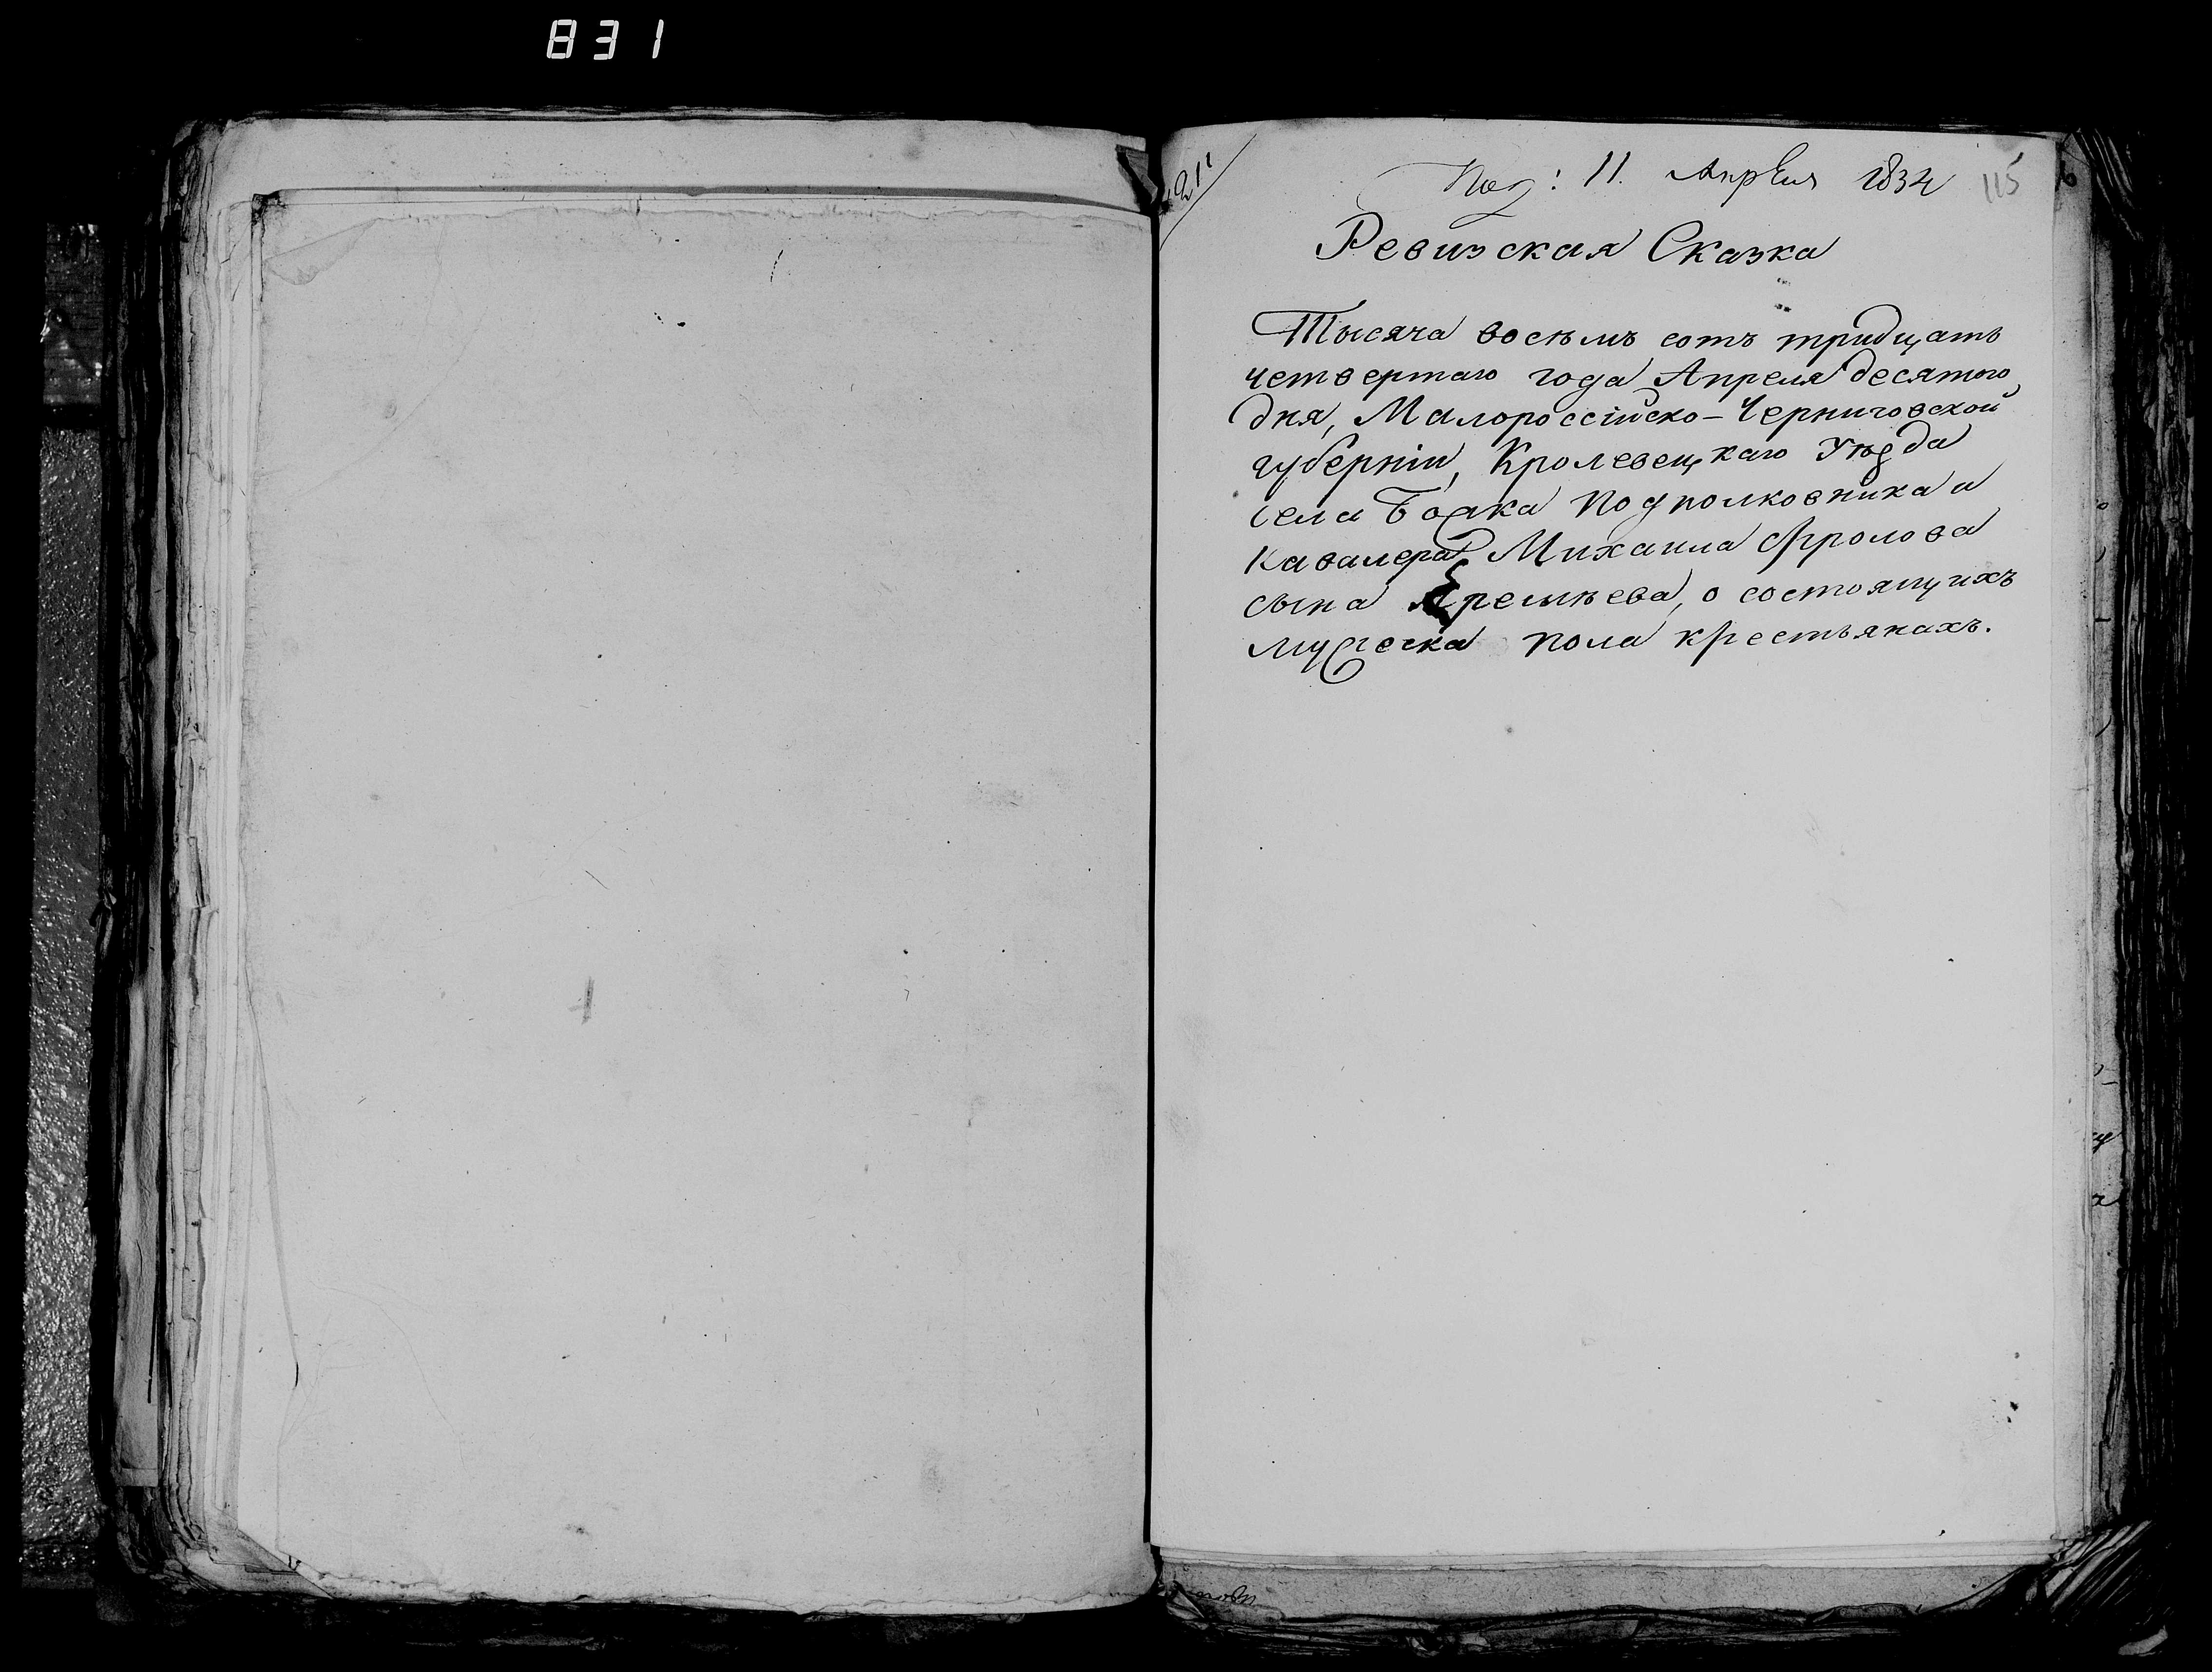 831
21
Под: 11. Апреля 1834
115
Ревизская Сказка
Тысяча восѣмъ сотъ тридцать
четвертаго года Апреля десятого
дня, Малороссійско-Черниговской
губерніи, Кролевецкаго Уѣзда
села Подполковника и
Кавалера Михаила Фролова
сына Еремѣева, о состоящихъ
мужеска пола крестьянахъ.